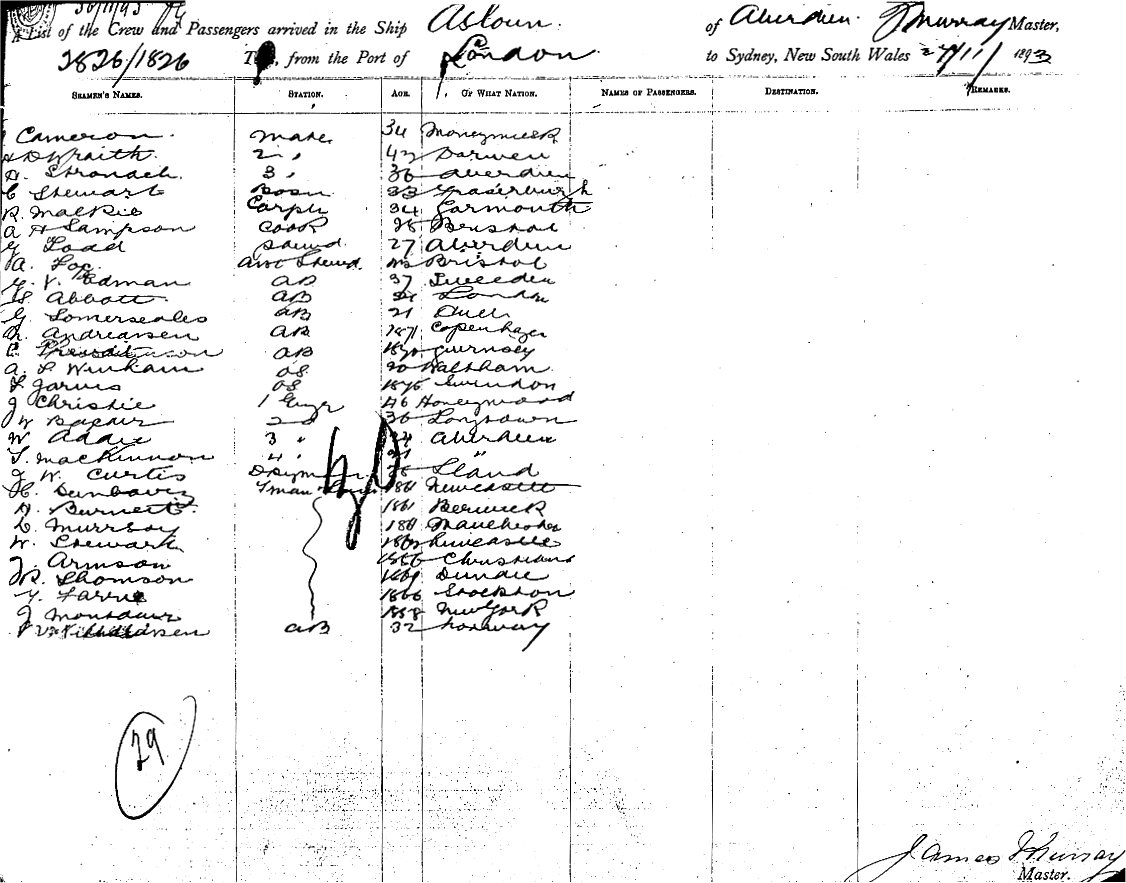 30/11/93
A List of the Crew and Passengers arrived in the Ship Asloun. of Aberdeen. J Murray Master,
2826/1826 T, from the Port of London to Sydney, New South Wales 27/11/1893
SEAMEN'S NAMES. STATION. AGE. OF WHAT NATION. NAMES OF PASSENGERS. DESTINATION. REMARKS.
Cameron. Mate 34 Moneymusk
D Wraith. 2 " 42 Darwen
Stronach. 3 " 36 Aberdeen
C Stewart Bosn 33 Fraserburgh
R. Mackie Carptr 34 Garmouth
A H Sampson Cook 28 Bristol
G Todd Stewd. 27 Aberdeen
A. Fog. Asst Stewd. Bristol
G. V. Edman AB 37 Sweeden
H Abbott. AB 21 London
G Somerscales AB 21 Hull
Andreasen AB 1871 Copenhagen
C. AB 1870 Guernsey
A. L Winham OS 20 Waltham
F Jarvis OS 1875 Swindon
J Christie 1 Engr 46 Honeywood
W 2nd 36 Longtown
W Addie 3 " 24 Aberdeen
T. MacKinnon 4 " 21 "
J W. Curtis Dkymn 28
H. Dunbavin Fman 1861 Newcastle
Burnett. 1861 Berwick
D. Murray 1861 Manchester
W. Stewart 1862 Newcastle
J. Armson 1866 Christiana
R. Thomson 1869 Dundee
1866 Stockton
J 1858 New York
AB 32 Norway
29
James Murray
Master.